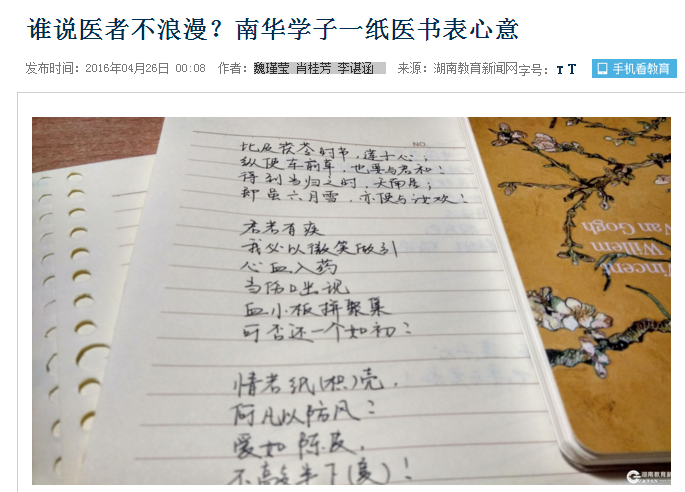 谁说医者不浪漫？南华学子一纸医书表心意
发布时间：2016年04月26日 00:08 作者：魏瑾莹 肖桂芳 李谌涵 来源：湖南教育新闻网 字号：T T 手机看教育
NO.
比及茯苓时节，莲子心；
纵使车前草，也要与君和！
待到当归之时，天南星；
即虽六月雪，亦便与汝欢！
君若有疾
我必以微笑做引
心血入药
当伤口出现
血小板拼聚集
可否还一个如初？
情若纸(枳)壳，
何凡以防风？
爱如陈皮，
不言半下(夏)！
Vincent
Willem
Van Gogh
湖南教育新